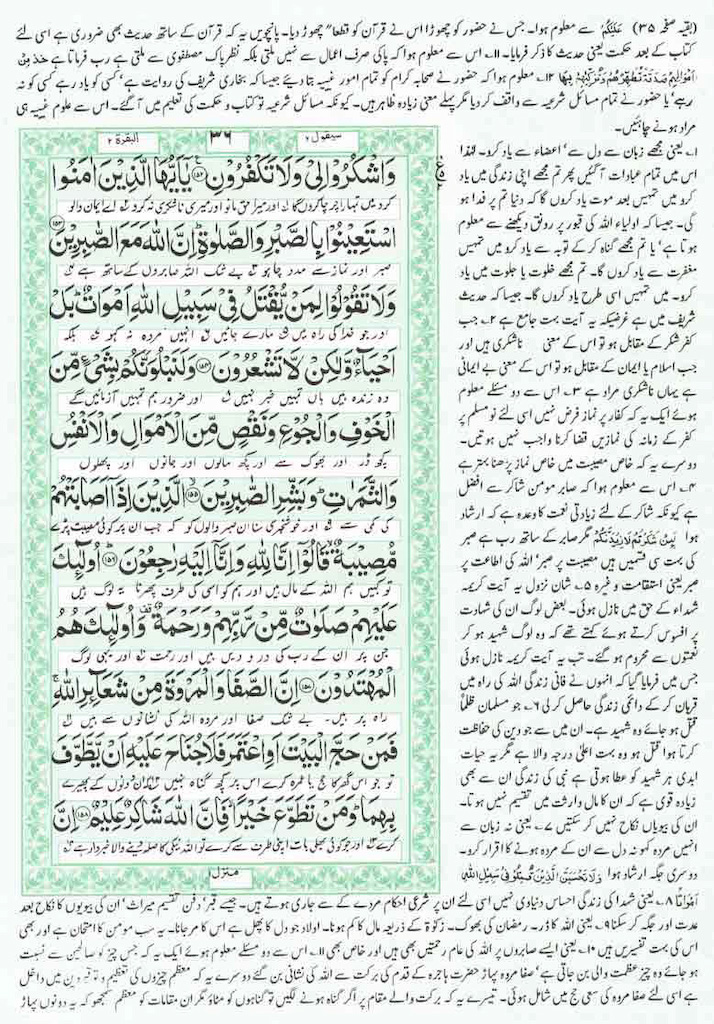 (بقیہ صفحہ ۳۵) عَلَیْکُمْ سے معلوم ہوا۔ جس نے حضور کو چھوڑا اس نے قرآن کو قطعاً چھوڑ دیا۔ پانچویں یہ کہ قرآن کے ساتھ حدیث بھی ضروری ہے اسی لئے
کتاب کے بعد حکمت یعنی حدیث کا ذکر فرمایا۔ ۱۱۔ اس سے معلوم ہوا کہ پاکی صرف اعمال سے نہیں ملتی بلکہ نظر پاک مصطفوی سے ملتی ہے رب فرماتا ہے خُذْ مِنْ
اَمْوَالِہِمْ صَدَقَۃً تُطَہِّرُہُمْ وَتُزَکِّیْہِمْ بِہَا ۱۲۔ معلوم ہوا کہ حضور نے صحابہ کرام کو تمام امور غیبیہ بتا دیئے جیسا کہ بخاری شریف کی روایت ہے' کسی کو یاد رہے کسی کو نہ
رہے' یا حضور نے تمام مسائل شرعیہ سے واقف کر دیا مگر پہلے معنی زیادہ ظاہر ہیں۔ کیونکہ مسائل شرعیہ تو کتاب و حکمت کی تعلیم میں آ گئے۔ اس سے علوم غیبیہ ہی
مراد ہونے چاہئیں۔
سیقول ۲
۳۶
البقرۃ ۲
وَاشْكُرُوْا لِیْ وَلَا تَكْفُرُوْنِ ۝۱۵۲ یٰۤاَیُّهَا الَّذِیْنَ اٰمَنُوا
اسْتَعِیْنُوْا بِالصَّبْرِ وَالصَّلٰوةِ اِنَّ اللّٰهَ مَعَ الصّٰبِرِیْنَ ۝۱۵۳
صبر اور نماز سے مدد چاہو بے شک اللہ صابروں کے ساتھ ہے
وَلَا تَقُوْلُوْا لِمَنْ یُّقْتَلُ فِیْ سَبِیْلِ اللّٰهِ اَمْوَاتٌ بَلْ
اور جو خدا کی راہ میں مارے جائیں انہیں مردہ نہ کہو بلکہ
اَحْیَآءٌ وَّلٰكِنْ لَّا تَشْعُرُوْنَ ۝۱۵۴ وَلَنَبْلُوَنَّكُمْ بِشَیْءٍ مِّنَ
وہ زندہ ہیں ہاں تمہیں خبر نہیں اور ضرور ہم تمہیں آزمائیں گے
الْخَوْفِ وَالْجُوْعِ وَنَقْصٍ مِّنَ الْاَمْوَالِ وَالْاَنْفُسِ
کچھ ڈر اور بھوک سے اور کچھ مالوں اور جانوں اور پھلوں
وَالثَّمَرٰتِ وَبَشِّرِ الصّٰبِرِیْنَ ۝۱۵۵ الَّذِیْنَ اِذَاۤ اَصَابَتْهُمْ
کی کمی سے اور خوشخبری سنا ان صبر والوں کو کہ جب ان پر کوئی مصیبت پڑے
مُّصِیْبَةٌ قَالُوْۤا اِنَّا لِلّٰهِ وَاِنَّاۤ اِلَیْهِ رٰجِعُوْنَ ۝۱۵۶ اُولٰٓئِكَ
تو کہیں ہم اللہ کے مال ہیں اور ہم کو اسی کی طرف پھرنا یہ لوگ ہیں
عَلَیْهِمْ صَلَوٰتٌ مِّنْ رَّبِّهِمْ وَرَحْمَةٌ وَاُولٰٓئِكَ هُمُ
جن پر ان کے رب کی درودیں ہیں اور رحمت اور یہی لوگ
الْمُهْتَدُوْنَ ۝۱۵۷ اِنَّ الصَّفَا وَالْمَرْوَةَ مِنْ شَعَآئِرِ اللّٰهِ
راہ پر ہیں۔ بے شک صفا اور مروہ اللہ کی نشانوں سے ہیں
فَمَنْ حَجَّ الْبَیْتَ اَوِ اعْتَمَرَ فَلَا جُنَاحَ عَلَیْهِ اَنْ یَّطَّوَّفَ
تو جو اس گھر کا حج یا عمرہ کرے اس پر کچھ گناہ نہیں کہ ان دونوں کے پھیرے
بِهِمَا وَمَنْ تَطَوَّعَ خَیْرًا فَاِنَّ اللّٰهَ شَاكِرٌ عَلِیْمٌ ۝۱۵۸ اِنَّ
کرے اور جو کوئی بھلی بات اپنی طرف سے کرے تو اللہ نیکی کا صلہ دینے والا خبردار ہے
منزل ۱
۱۔ یعنی مجھے زبان سے دل سے' اعضاء سے یاد کرو۔ لہٰذا
اس میں تمام عبادات آ گئیں پھر تم مجھے اپنی زندگی میں یاد
کرو میں تمہیں بعد موت یاد کروں گا کہ دنیا تم پر فدا ہو
گی۔ جیسا کہ اولیاء اللہ کی قبور پر رونق دیکھنے سے معلوم
ہوتا ہے' یا تم مجھے گناہ کر کے توبہ سے یاد کرو میں تمہیں
مغفرت سے یاد کروں گا۔ تم مجھے خلوت یا جلوت میں یاد
کرو۔ میں تمہیں اسی طرح یاد کروں گا۔ جیسا کہ حدیث
شریف میں ہے غرضیکہ یہ آیت بہت جامع ہے ۲۔ جب
کفر شکر کے مقابل ہو تو اس کے معنی ناشکری ہیں اور
جب اسلام یا ایمان کے مقابل ہو تو اس کے معنی بے ایمانی
ہے یہاں ناشکری مراد ہے ۳۔ اس سے دو مسئلے معلوم
ہوئے ایک یہ کہ کفار پر نماز فرض نہیں اسی لئے نو مسلم پر
کفر کے زمانہ کی نمازیں قضا کرنا واجب نہیں ہوتیں۔
دوسرے یہ کہ خاص مصیبت میں خاص نماز پڑھنا بہتر ہے
۴۔ اس سے معلوم ہوا کہ صابر مومن شاکر سے افضل
ہے کیونکہ شاکر کے لئے زیادتی نعمت کا وعدہ ہے کہ ارشاد
ہوا لَئِنْ شَکَرْتُمْ لَاَزِیْدَنَّکُمْ مگر صابر کے ساتھ رب ہے صبر
کی بہت سی قسمیں ہیں مصیبت پر صبر' اللہ کی اطاعت پر
صبر یعنی استقامت وغیرہ ۵۔ شان نزول یہ آیت کریمہ
شہداء کے حق میں نازل ہوئی۔ بعض لوگ ان کی شہادت
پر افسوس کرتے ہوئے کہتے تھے کہ وہ لوگ شہید ہو کر
نعمتوں سے محروم ہو گئے۔ تب یہ آیت کریمہ نازل ہوئی
جس میں فرمایا گیا کہ انہوں نے فانی زندگی اللہ کی راہ میں
قربان کر کے دائمی زندگی حاصل کر لی ۶۔ جو مسلمان ظلماً
قتل ہو جائے وہ شہید ہے۔ ان میں سے جو دین کی حفاظت
کرتا ہوا قتل ہو وہ بہت اعلیٰ درجہ والا ہے مگر یہ حیات
ابدی ہر شہید کو عطا ہوتی ہے نبی کی زندگی ان سے بھی
زیادہ قوی ہے کہ ان کا مال وارثت میں تقسیم نہیں ہوتا۔
ان کی بیویاں نکاح نہیں کر سکتیں ۷۔ یعنی نہ زبان سے
انہیں مردہ کہو نہ دل سے ان کے مردہ ہونے کا اقرار کرو۔
دوسری جگہ ارشاد ہوا وَلَا تَحْسَبَنَّ الَّذِیْنَ قُتِلُوْا فِیْ سَبِیْلِ اللّٰہِ
اَمْوَاتًا ۸۔ یعنی شہدا کی زندگی احساس دنیاوی نہیں اسی لئے ان پر شرعی احکام مردے کے سے جاری ہوتے ہیں۔ جیسے قبر' دفن' تقسیم میراث' ان کی بیویوں کا نکاح بعد
عدت اور جگہ کر سکنا ۹۔ یعنی اللہ کا ڈر۔ رمضان کی بھوک۔ زکوٰۃ کے ذریعہ مال کا کم ہونا۔ اولاد جو دل کا پھل ہے اس کا مر جانا۔ یہ سب مومن کا امتحان ہے اور بھی
اس کی بہت تفسیریں ہیں ۱۰۔ یعنی ایسے صابروں پر اللہ کی عام رحمتیں بھی ہیں اور خاص بھی ۱۱۔ اس سے دو مسئلے معلوم ہوئے ایک یہ کہ جس چیز کو صالحین سے نسبت
ہو جائے وہ چیز عظمت والی بن جاتی ہے' صفا مروہ پہاڑ حضرت ہاجرہ کے قدم کی برکت سے اللہ کی نشانی بن گئے دوسرے یہ کہ معظم چیزوں کی تعظیم و توقیر دین میں داخل
ہے اسی لئے صفا مروہ کی سعی حج میں شامل ہوئی۔ تیسرے یہ کہ برکت والے مقام پر اگر گناہ ہونے لگیں تو گناہوں کو مٹاؤ مگر ان مقامات کو معظم سمجھو کہ یہ دونوں پہاڑ